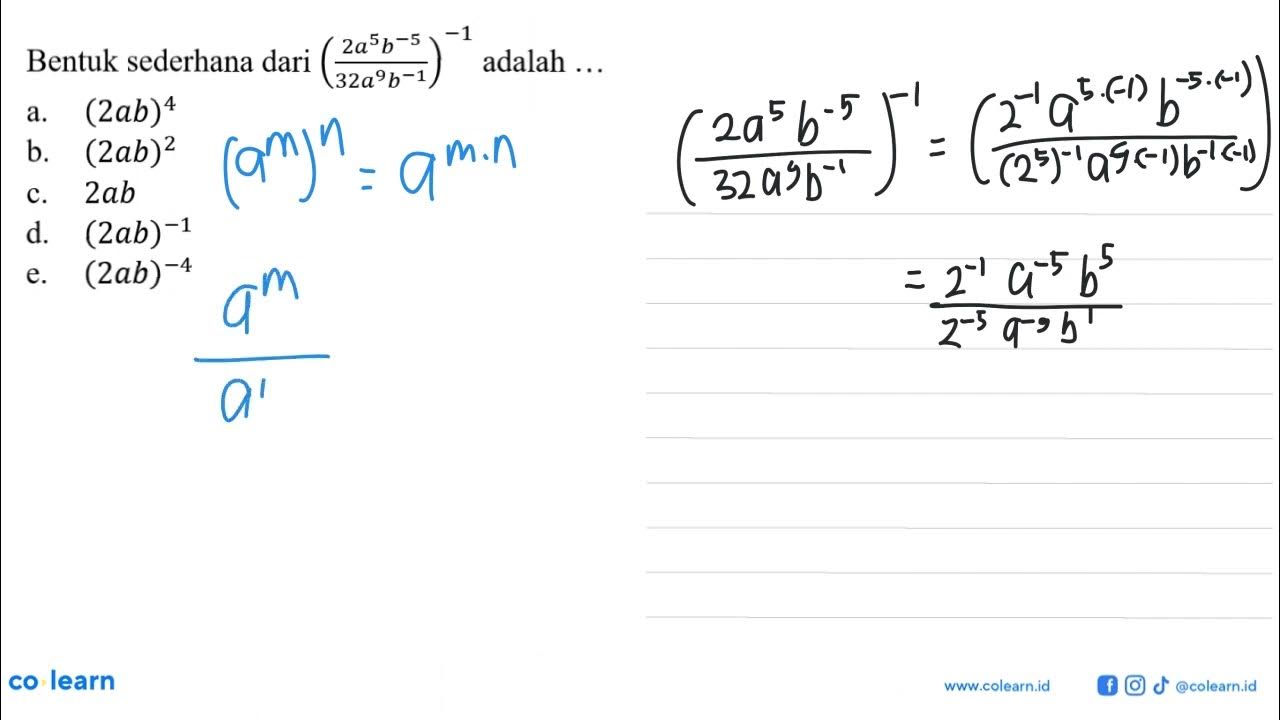 Bentuk sederhana dari (\frac{2a^5b^{-5}}{32a^9b^{-1}})^{-1} adalah …
a. (2ab)^4
b. (2ab)^2
c. 2ab
d. (2ab)^{-1}
e. (2ab)^{-4}
(a^m)^n = a^{m·n}
\frac{a^m}{a^{\prime}}
(\frac{2a^5 b^{-5}}{32a^9b^{-1}})^{-1} = (\frac{2^{-1} a^{5·(-1)} b^{-5·(-1)}}{(2^5)^{-1} a^{9·(-1)} b^{-1(-1)}})
= \frac{2^{-1} a^{-5} b^5}{2^{-5} a^{-9} b^1}
co learn
www.colearn.id
@colearn.id